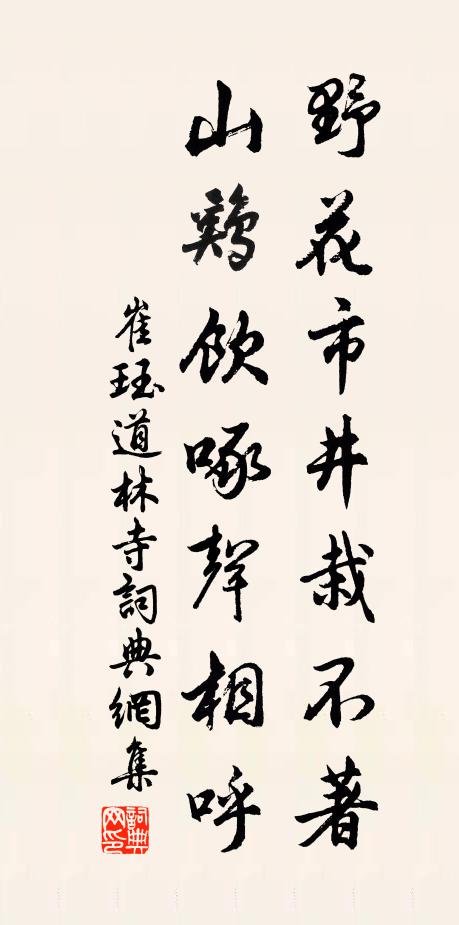 野花市井栽不著
山鷄飲啄聲相呼
崔珏道林寺詞典網集
詞典網印